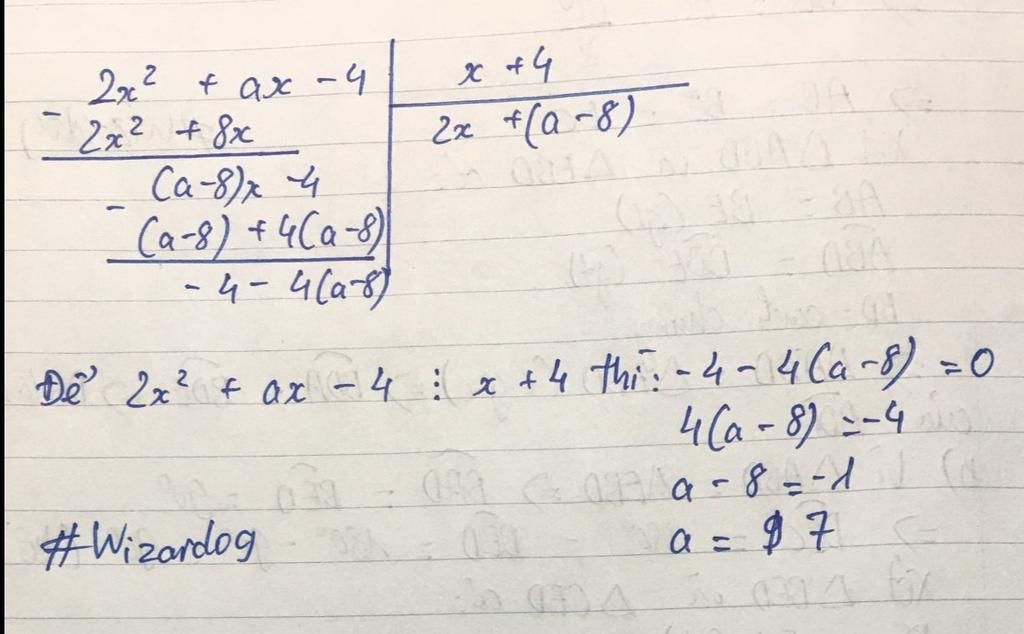 2x² + ax - 4 | x + 4
- 2x² + 8x | 2x + (a - 8)
(a-8)x - 4
- (a-8) + 4(a-8)
- 4 - 4(a-8)
Để 2x² + ax - 4 ⋮ x + 4 thì: - 4 - 4(a - 8) = 0
4(a - 8) = -4
a - 8 = -1
a = 7
#Wizardog